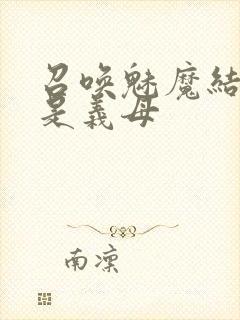 召唤魅魔結
是義母
南凜